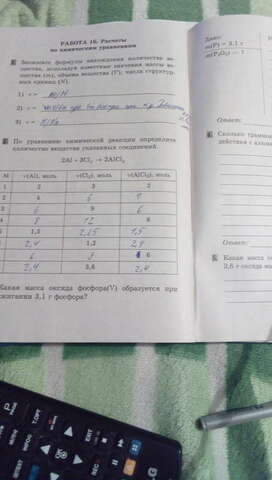 РАБОТА 16. Расчеты
по химическим уравнениям
Запишите формулы нахождения количества ве-
щества, используя известные значения массы ве-
щества (m), объема вещества (V), числа структур-
ных единиц (N).
1) ν = m/M
2) ν =
3) ν = N/Na
По уравнению химической реакции определите
количества вещества указанных соединений.
2Al + 3Cl₂ → 2AlCl₃
№ ν(Al), моль ν(Cl₂), моль ν(AlCl₃), моль
1 2 3 2
2 4 6 4
3 6 9 6
4 8 12 8
5 1,5 2,25 1,5
2,4 1,2 2,4
6 9 6
2,4 3,6 2,4
Какая масса оксида фосфора(V) образуется при
сжигании 3,1 г фосфора?
Дано:
m(P) = 3,1 г
m(P₂O₅) = ?
Ответ:
Сколько грамм
действии с алюм
Ответ:
Какая масса
3,6 г оксида ма
T.OPT
INFO
TEXT
EXIT
REC
G